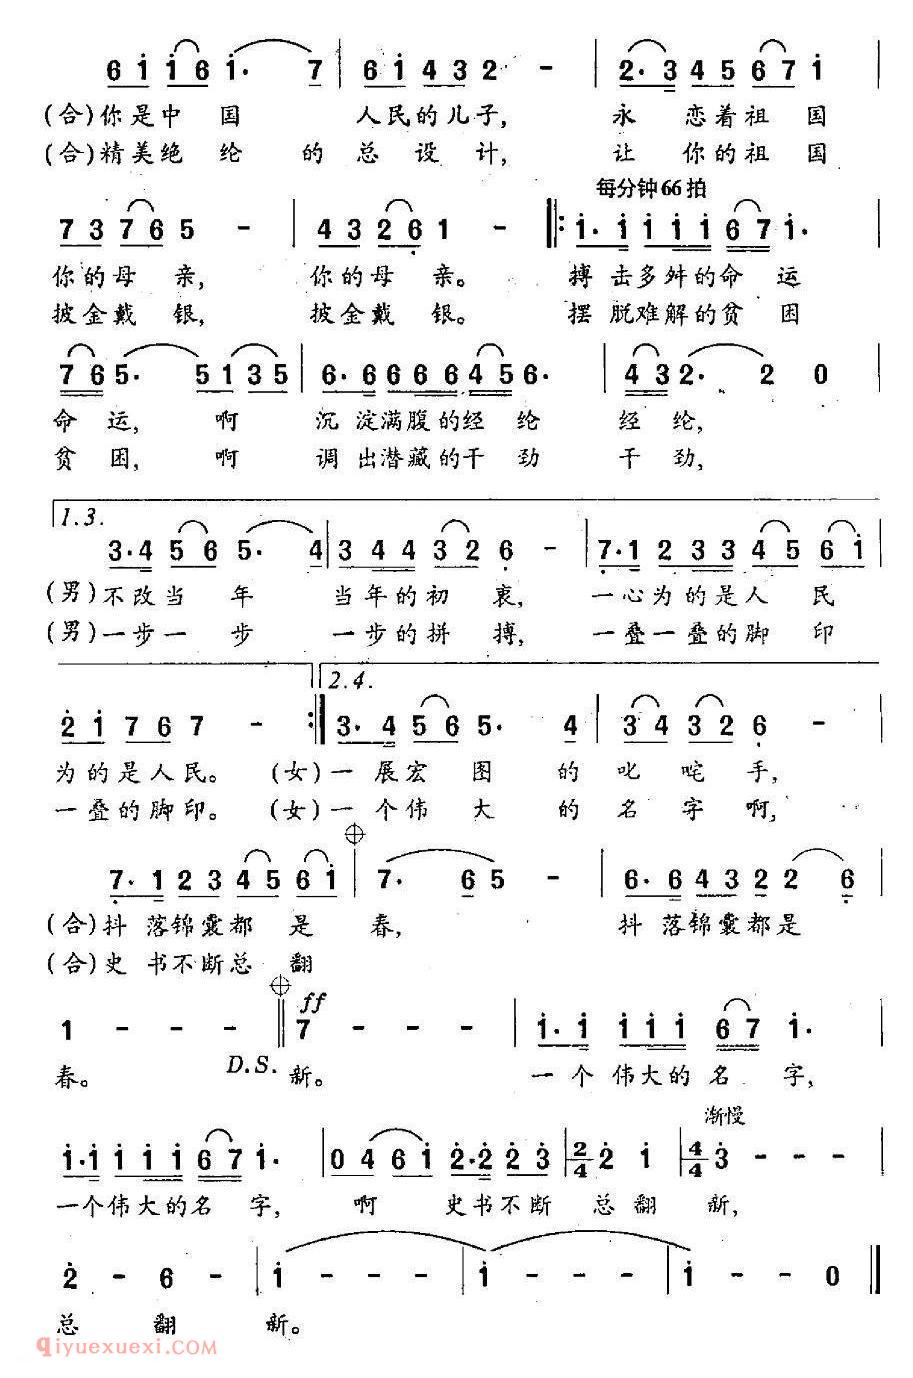 6 i i 6 i· 7 | 6 i 4 3 2 - | 2· 3 4 5 6 7 i |
(合)你是中国 人民的儿子, 永 恋着祖国
(合)精美绝纶的总设计, 让 你的祖国
每分钟66拍
7 3 7 6 5 - | 4 3 2 6 1 - ‖: i· i i i i 6 7 i· |
你的母亲, 你的母亲。 搏击多舛的命运
披金戴银, 披金戴银。 摆脱难解的贫困
7 6 5· 5 1 3 5 | 6· 6 6 6 6 4 5 6· | 4 3 2· 2 0 |
命运, 啊 沉淀满腹的经纶 经纶,
贫困, 啊 调出潜藏的干劲 干劲,
1.3.
3·4 5 6 5· 4 | 3 4 4 3 2 6 - | 7·1 2 3 3 4 5 6 i |
(男)不改当年 当年的初衷, 一心为的是人民
(男)一步一步 一步的拼搏, 一叠一叠的脚印
2.4.
2 i 7 6 7 - :‖ 3· 4 5 6 5· 4 | 3 4 3 2 6 - |
为的是人民。 (女)一展宏图的叱咤手,
一叠的脚印。 (女)一个伟大的名字啊,
7· 1 2 3 4 5 6 i | 7· 6 5 - | 6· 6 4 3 2 2 6 |
(合)抖落锦囊都是春, 抖落锦囊都是
(合)史书不断总翻
ff
1 - - - ‖ 7 - - - | i· i i i i 6 7 i· |
春。 D.S. 新。 一个伟大的名字,
渐慢
i·i i i i 6 7 i· | 0 4 6 i 2·2 2 3 | 2/4 2 i | 4/4 3 - - - |
一个伟大的名字, 啊 史书不断总翻新,
2 - 6 - | i - - - | i - - - | i - - 0 ‖
总翻新。
qiyuexuexi.com